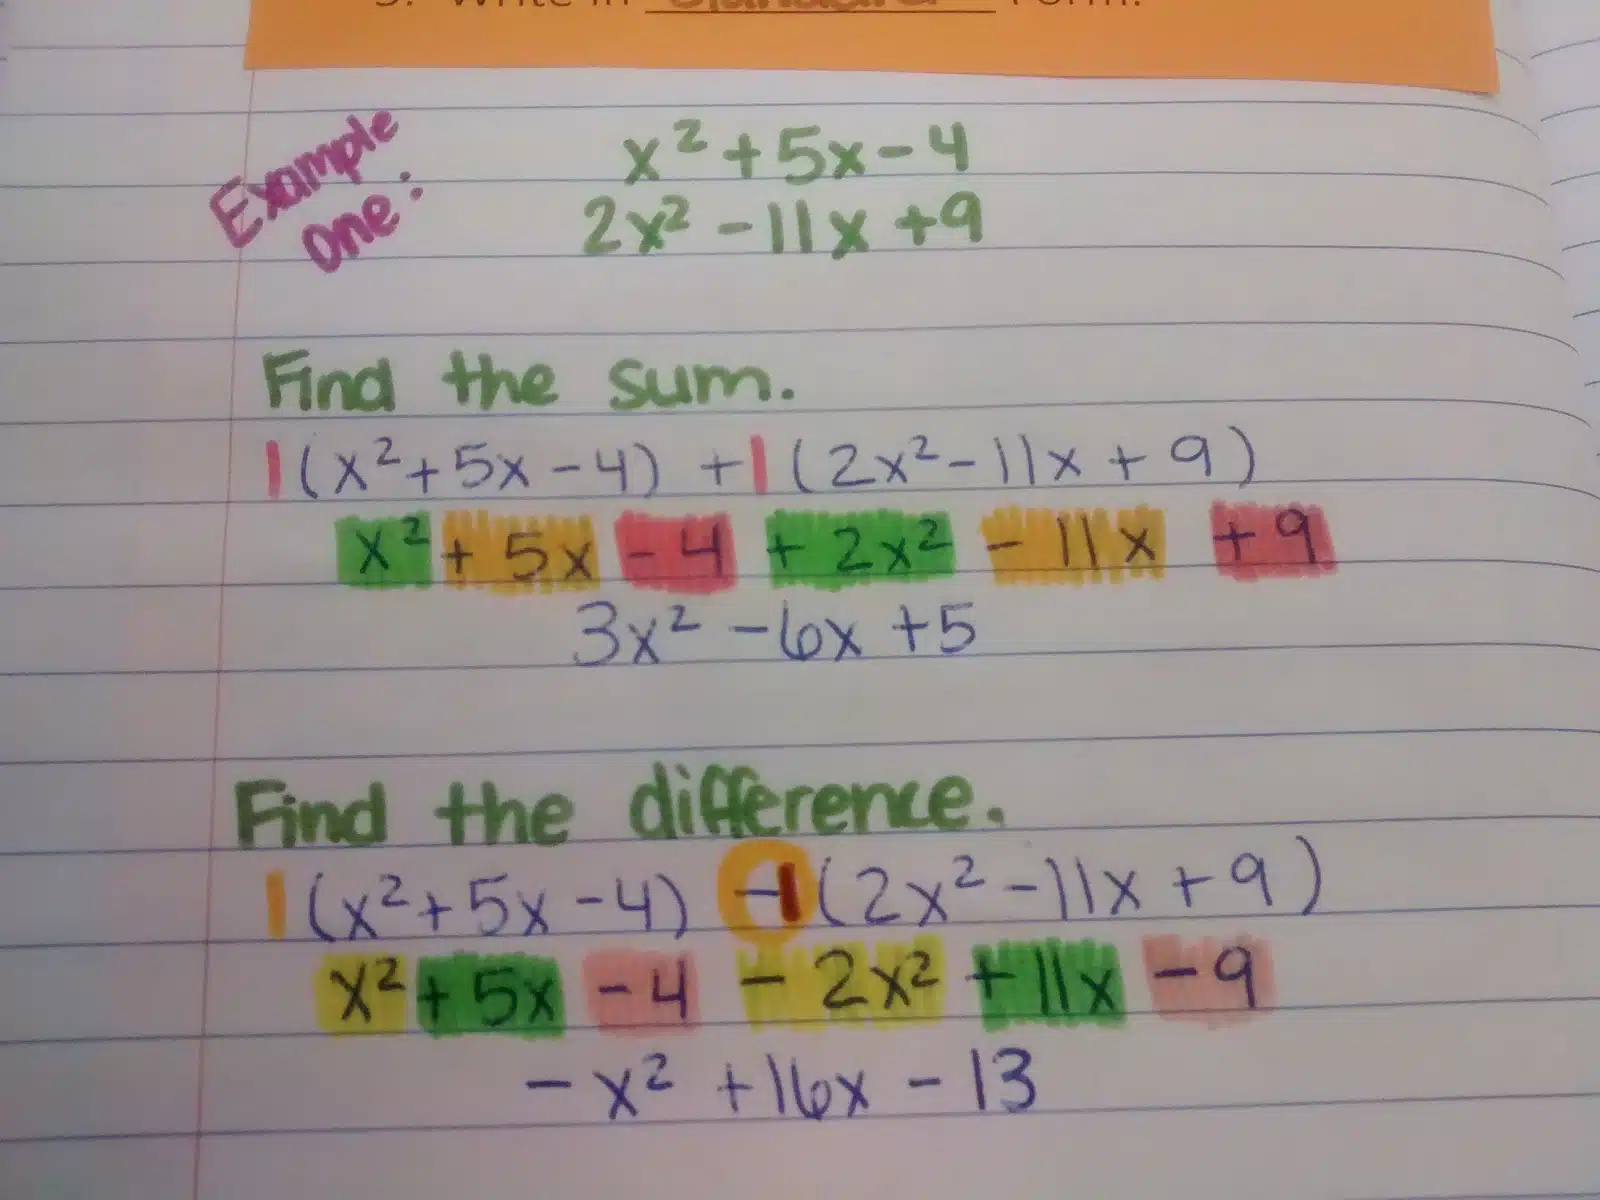 3. Write in standard form.
Example
One:
x² + 5x - 4
2x² - 11x + 9
Find the sum.
1(x² + 5x - 4) + 1(2x² - 11x + 9)
x² + 5x - 4 + 2x² - 11x + 9
3x² - 6x + 5
Find the difference.
1(x² + 5x - 4) - 1(2x² - 11x + 9)
x² + 5x - 4 - 2x² + 11x - 9
- x² + 16x - 13